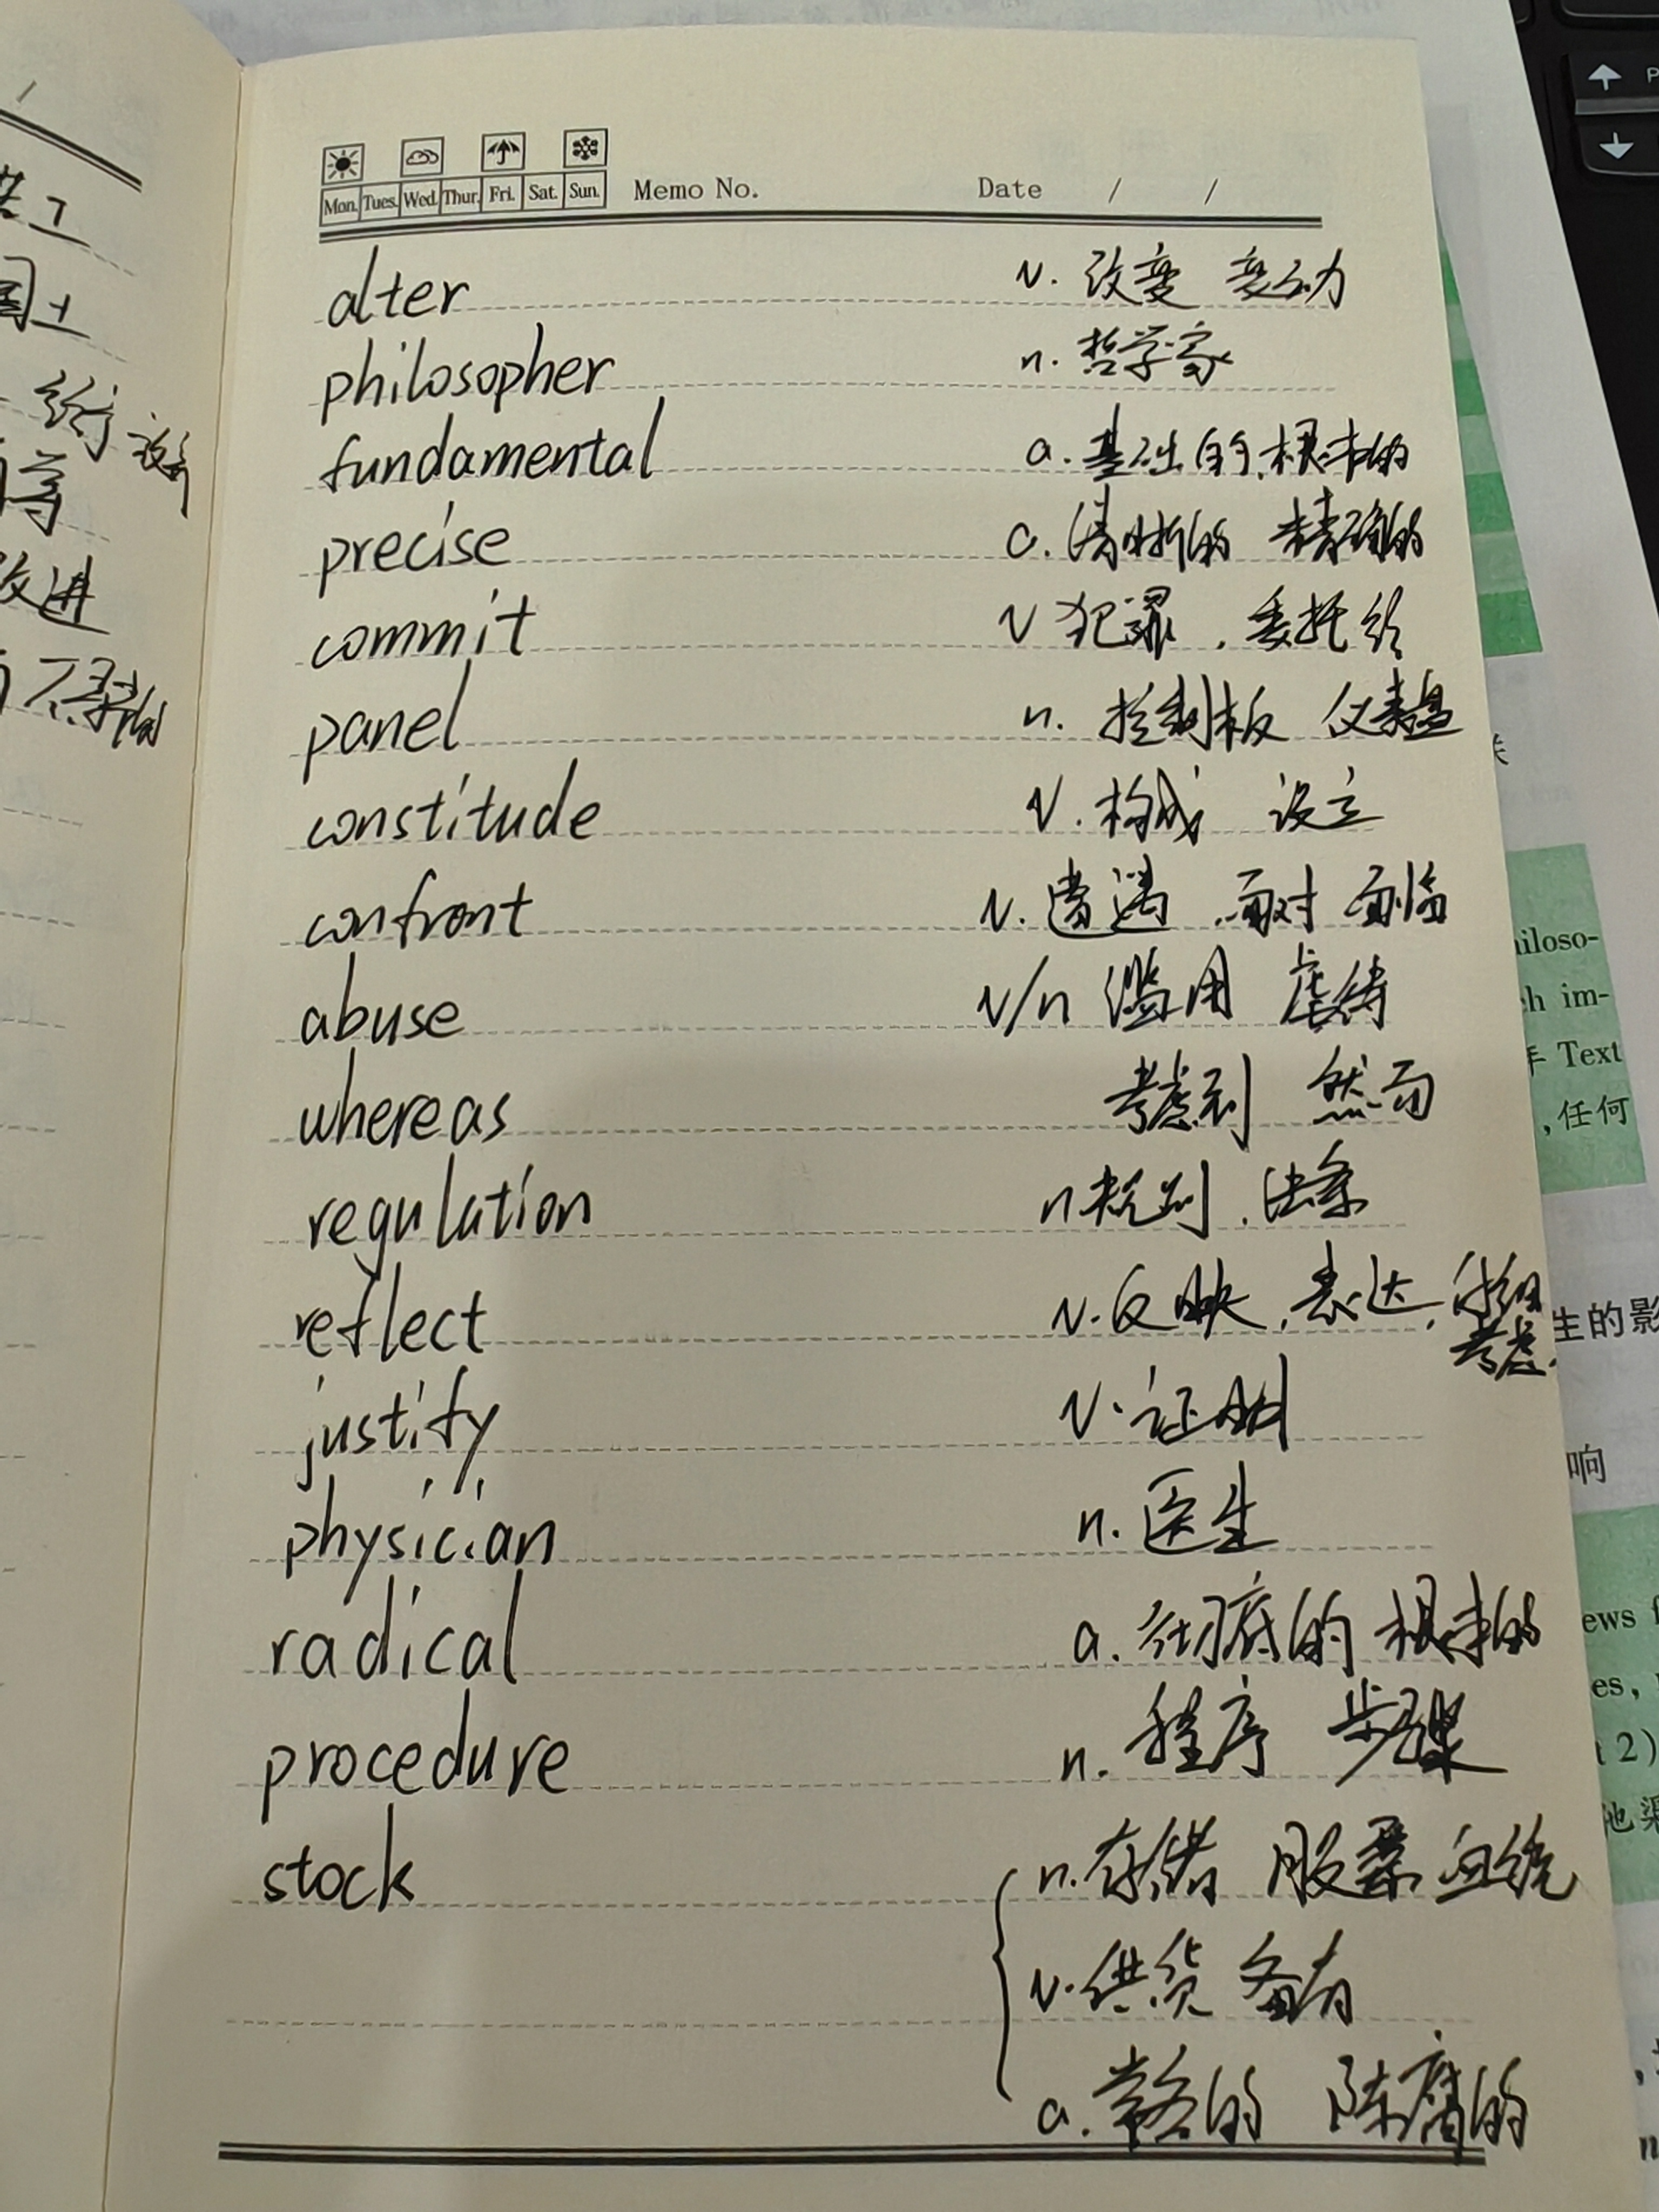 Mon. Tues. Wed. Thur. Fri. Sat. Sun. Memo No. Date / /
alter v. 改变 变动
philosopher n. 哲学家
fundamental a. 基础的,根本的
precise a. 清晰的 精确的
commit v 犯罪,委托给
panel n. 控制板 仪表盘
constitude v. 构成 设立
confront v. 遭遇,面对 面临
abuse v/n 滥用 虐待
whereas 考虑到 然而
regulation n 规则,法条
reflect v. 反映,表达,仔细
考虑.
justify v. 证明
physician n. 医生
radical a. 彻底的 根本的
procedure n. 程序 步骤
stock n. 存储 股票 血统
v. 供货 备有
a. 常备的 陈腐的
国土
改进
hiloso-
ch im-
年 Text
,任何
生的影
响
ews f
es,
t 2)
池渠